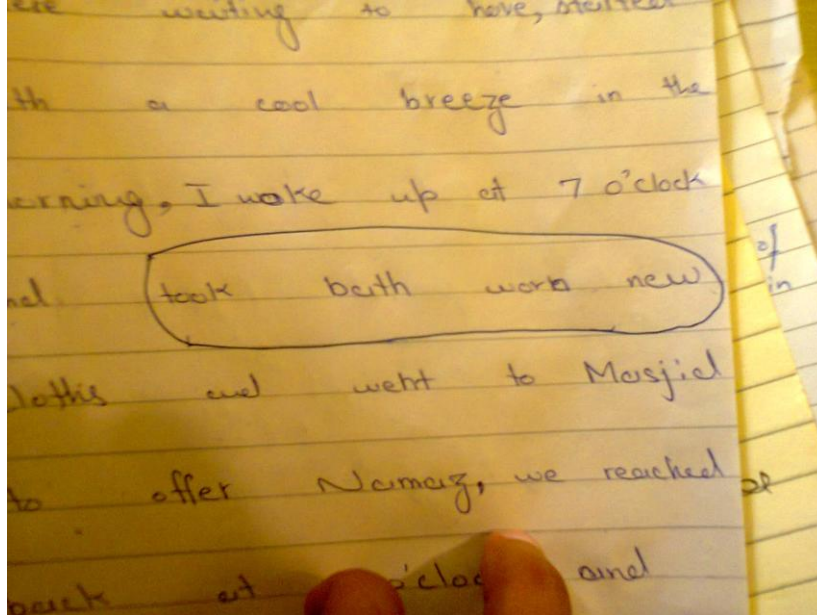 waiting to have, started
th a cool breeze in the
orning, I woke up at 7 o'clock
took bath worn new
lothis and went to Masjid
to offer Namaz, we reached
back at o'cloc and
of
in